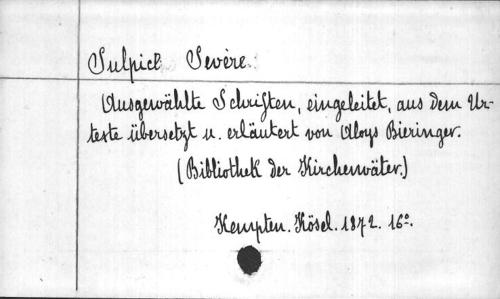 Sulpice Sevère.
Ausgewählte Schriften, eingeleitet, aus dem Ur-
texte übersetzt u. erläutert von Aloys Bieringer.
(Bibliothek der Kirchenväter.)
Kempten. Kösel. 1872. 16°.